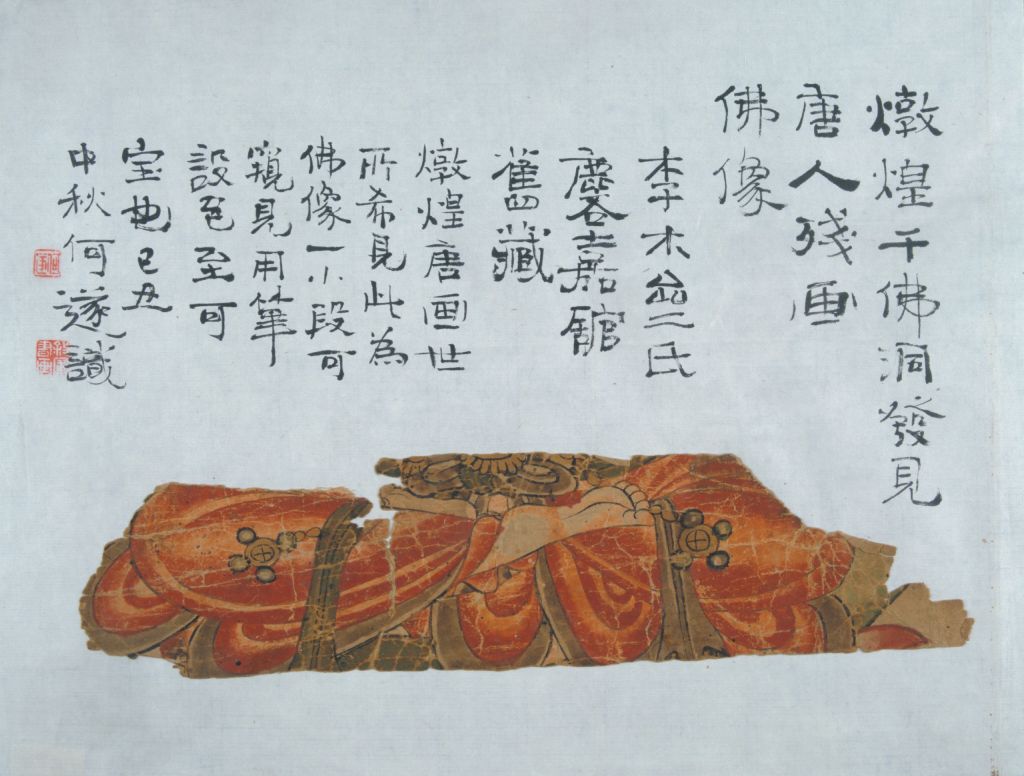 燉煌千佛洞發見
唐人殘画
佛像
李木亝氏
麐嘉館
舊藏
燉煌唐画世
所希見此為
佛像一小段可
窺見用筆
設色至可
宝也己丑
中秋何遂識